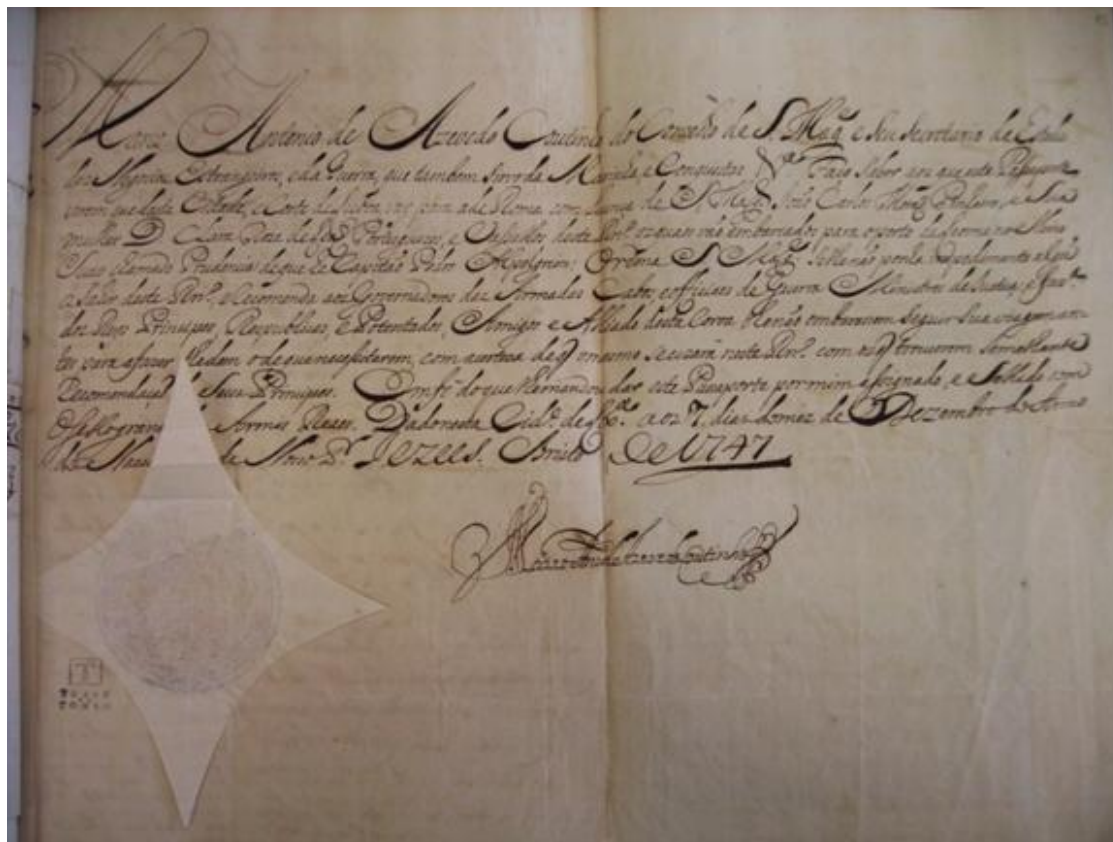 Marco Antonio de Azevedo Coutinho do Concelho de S. Mag.e e Seu Secretario de Estado
dos Negocios Estrangeiros, e da Guerra, que tambem Sirvo da Marinha, e Conquistas &.a Faço Saber aos que este Pasaporte
virem que desta Cidade, e Corte de Lisboa vay para a de Roma com licença de S. Mag.e João Carlos e Sua
mulher D. Clara Roza de Portuguezes, e Vasallos deste Rn.o os quaes vão embarcados para o porte de no Navio
chamado Prudencia de que he Capitão Pedro Ordena S. Mag.e Se lhe não ponha impedimento algú
a Sahir deste Rn.o, e Recomenda aos Governadores das Armadas Cabos, e officiaes de Guerra Ministros de Justiça, e Faz.a
dos Reys Principes, Respublicas e Potentados, Amigos e Aliados desta Coroa lhe não embaracem Seguir Sua viagem an
tes para a fazer lhe dem o de que necessitarem, com a certeza de q o mesmo Se uzará neste Rn.o com os q trouxerem Semelhante
Recomendação de Seus Principes. Em fé do que lhe mandou dar este Pasaporte por mim assignado, e Sellado com
o Sello grande de Armas Reaes. Dado nesta Cid.e de Lx.a aos 7 dias do mez de Dezembro do Anno
do Nas de Nosso S.r JEZUS Christo De 1747
Marco Antonio de Azevedo Coutinho
TT
TORRE
DO
TOMBO